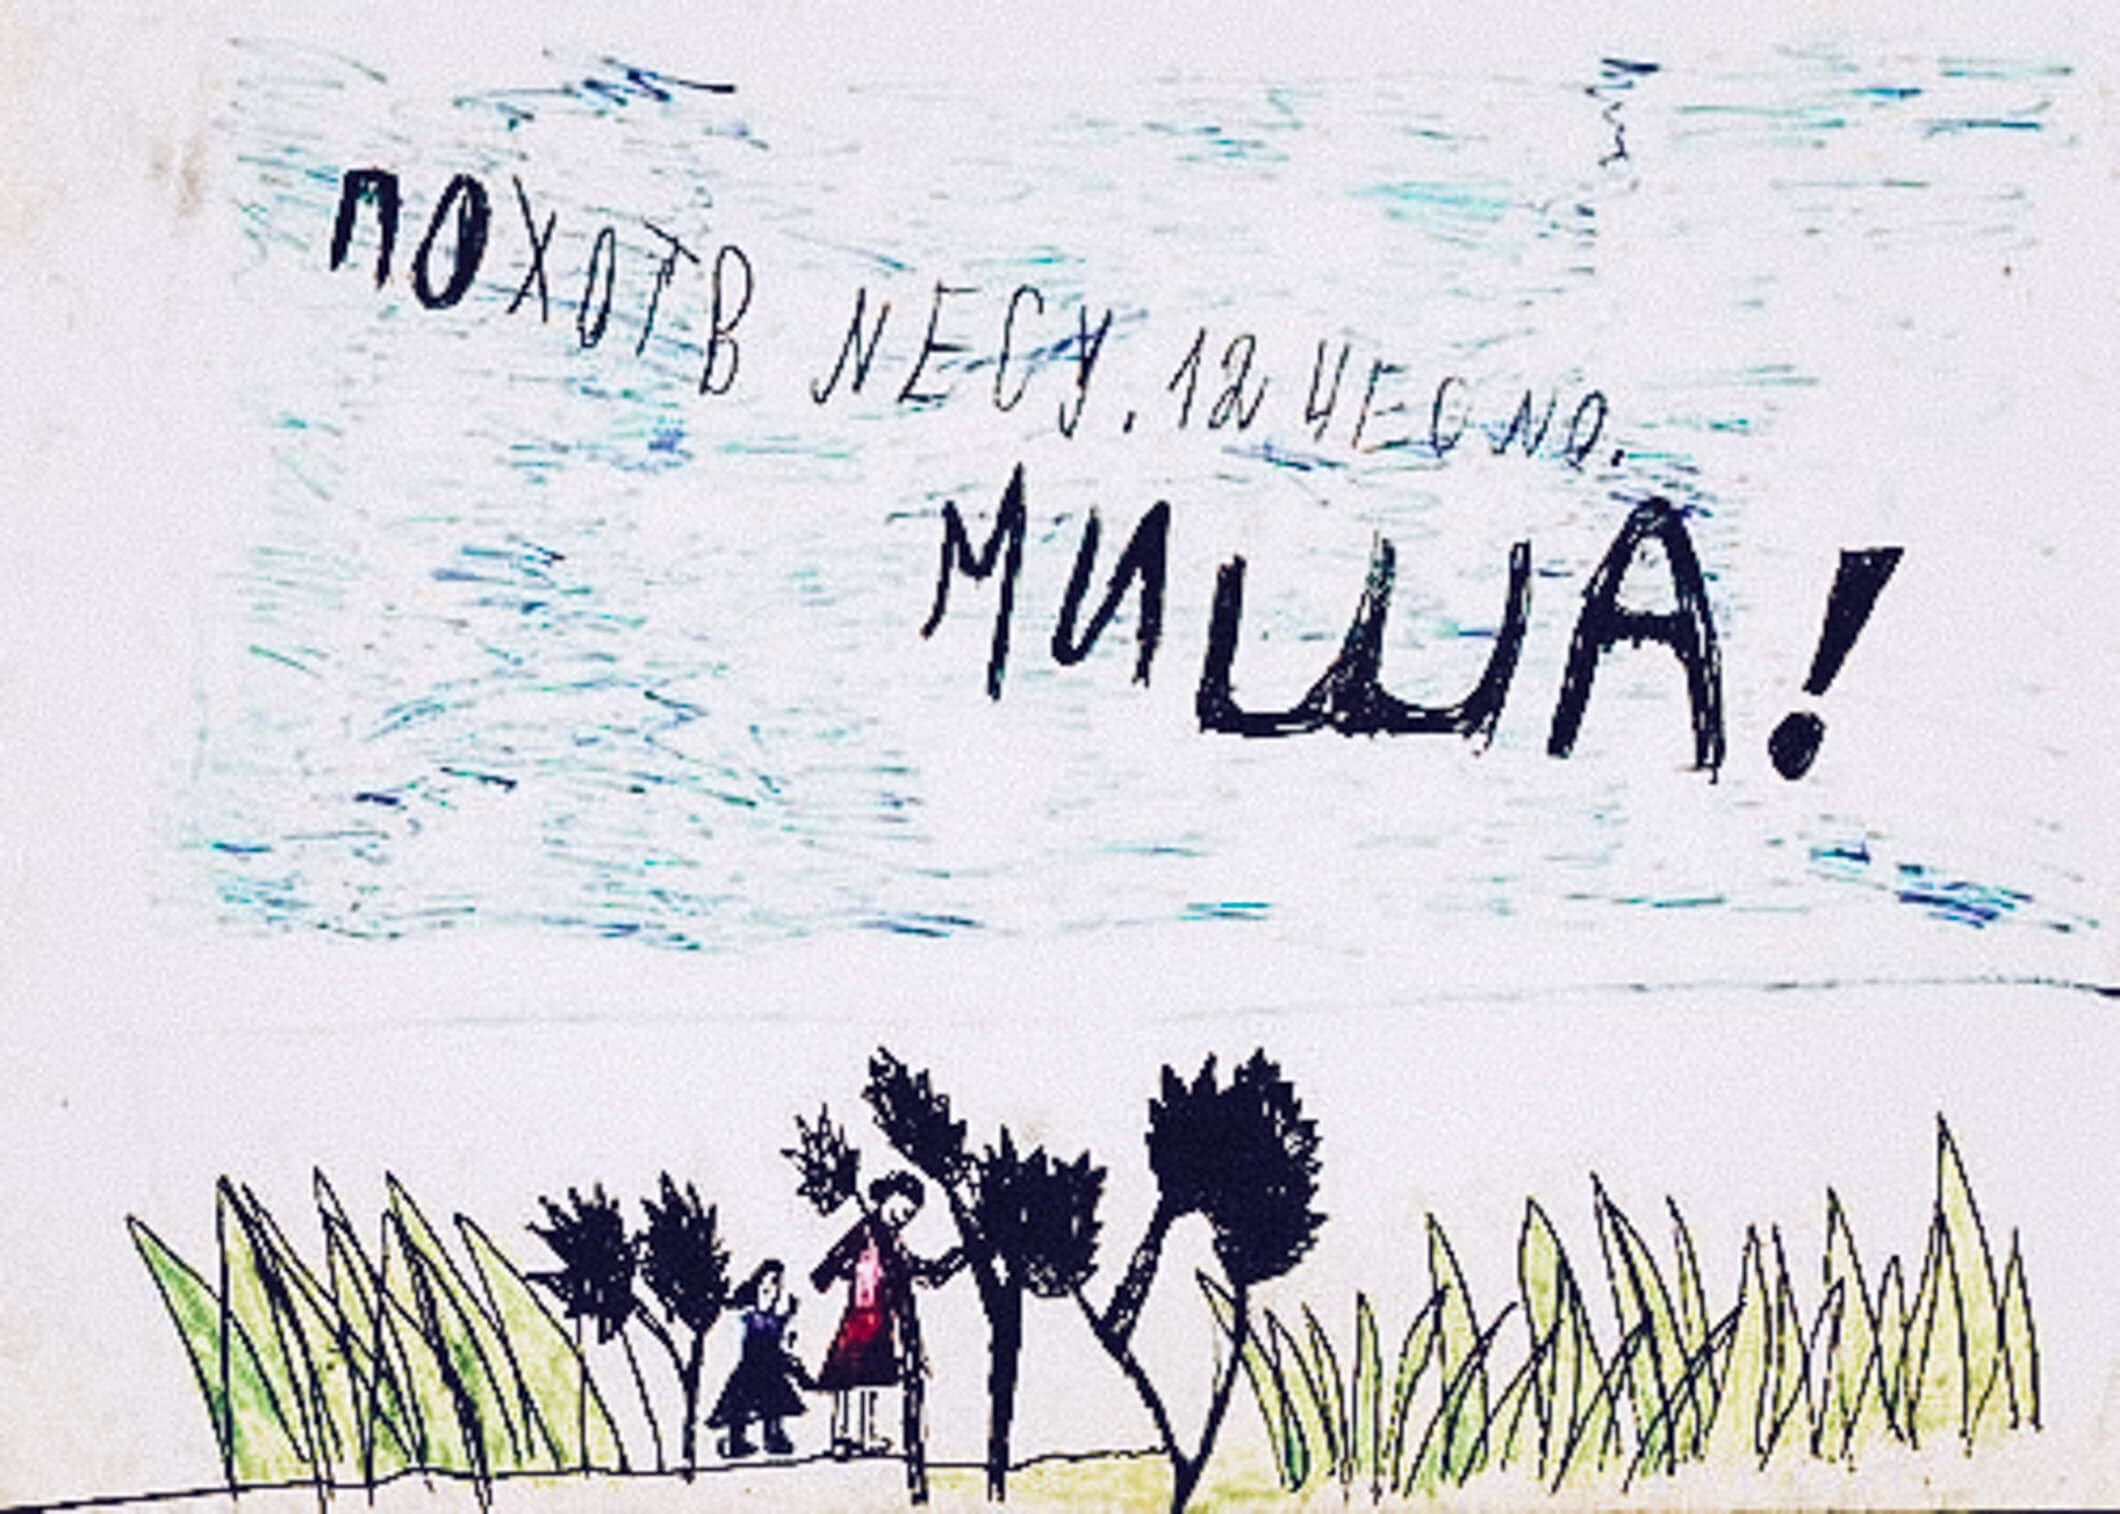 ПОХОТВ NЕСУ. 12 ЧЕС NО.
МИША!